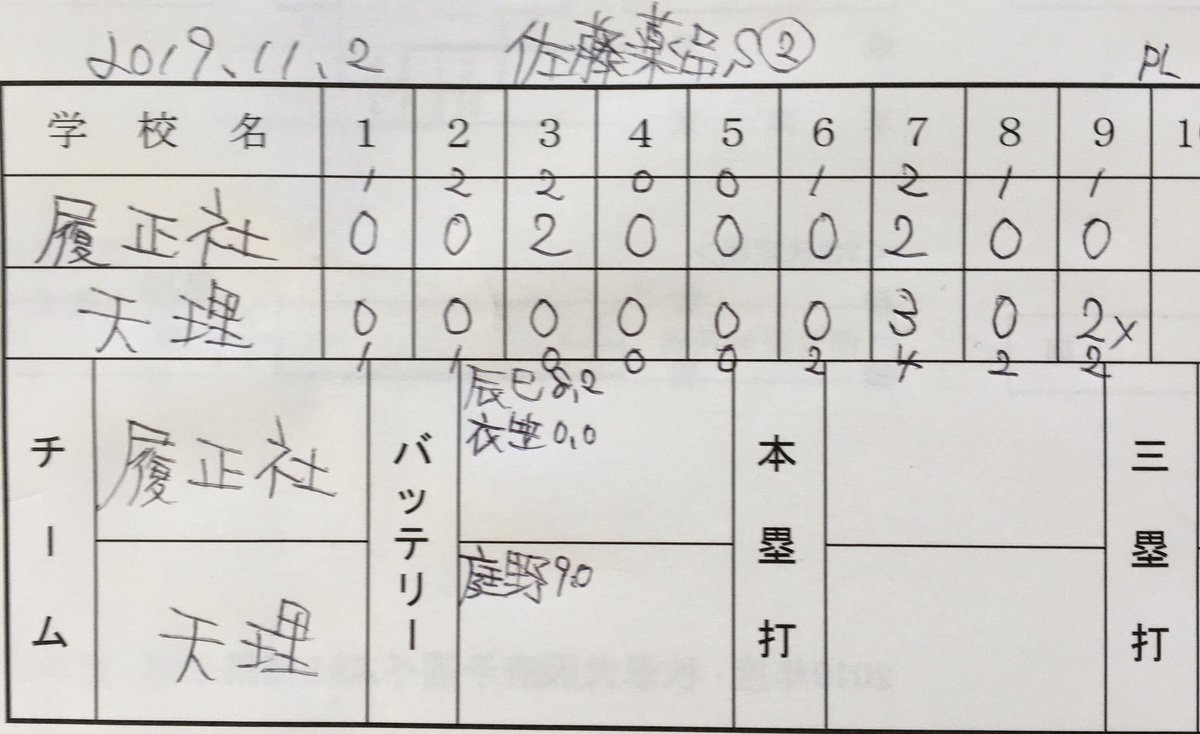 2019.11.2 佐藤薬品S② PL
学校名 1 2 3 4 5 6 7 8 9 1
1 2 2 0 0 1 2 1 1
履正社 0 0 2 0 0 0 2 0 0
天理 0 0 0 0 0 0 3 0 2x
1 1 0 0 0 2 4 2 2
チーム
履正社
天理
バッテリー
辰巳8,2
衣笠0,0
庭野9.0
本塁打
三塁打